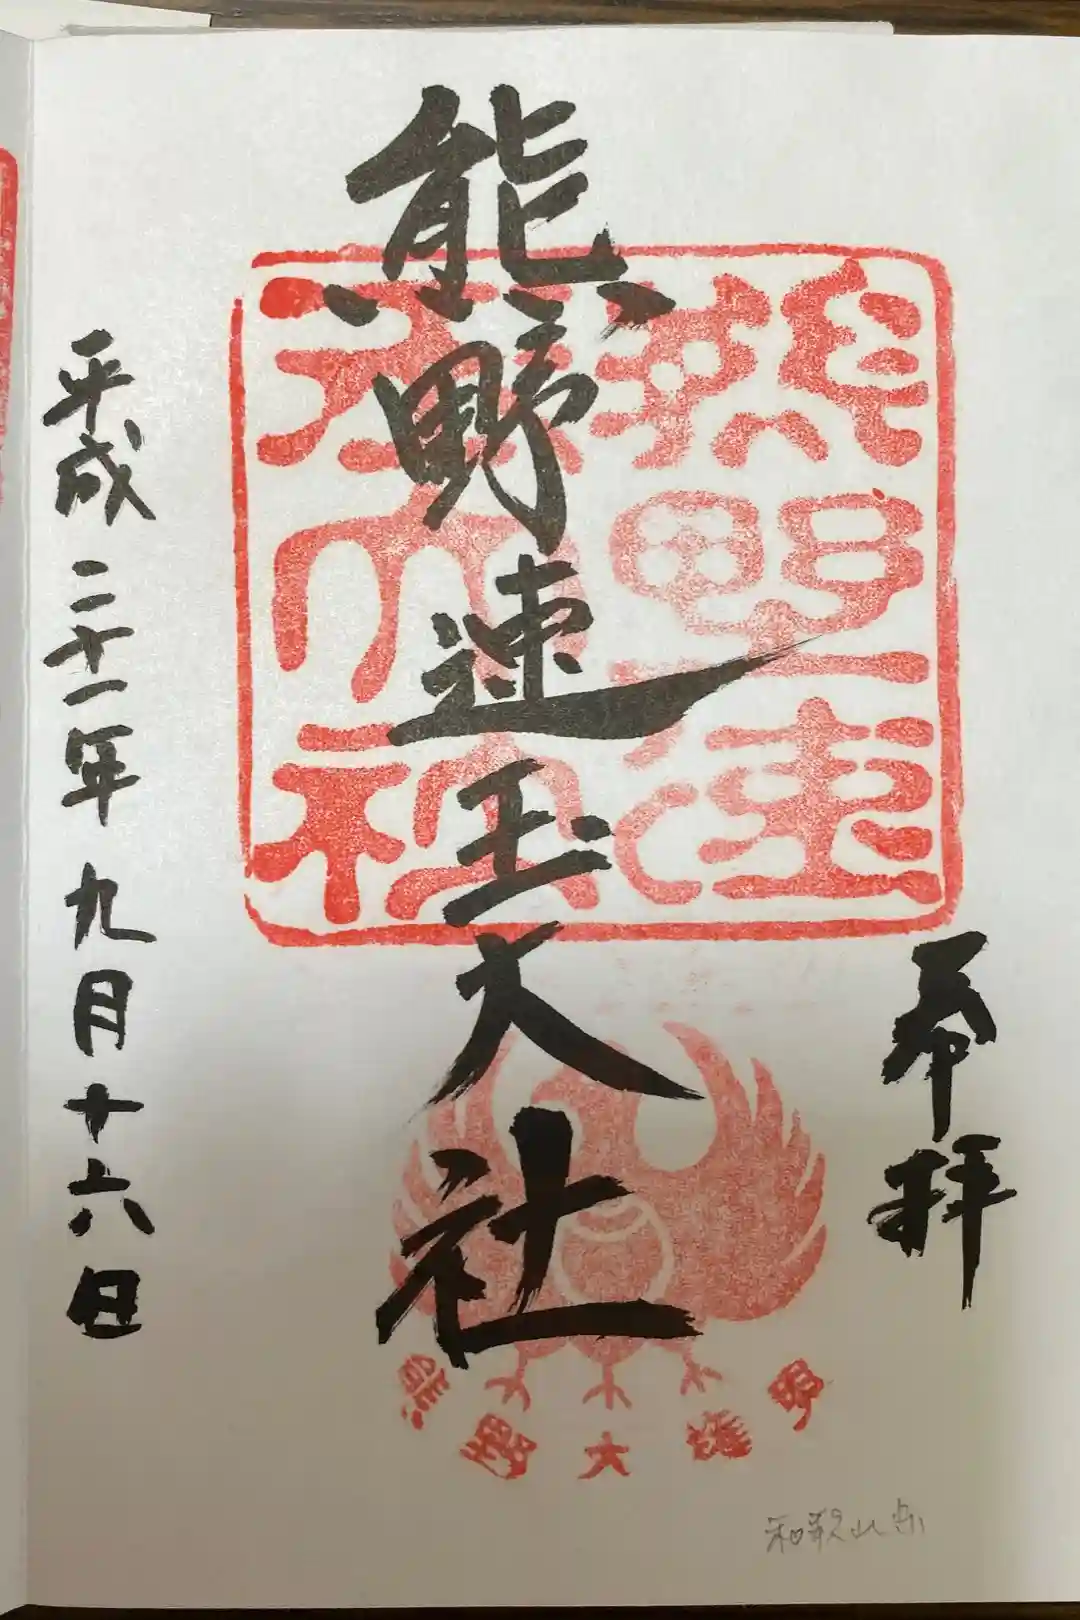 奉拝
熊野速玉大社
平成二十一年九月十六日
熊野速
玉大社
熊野大権現
和歌山県